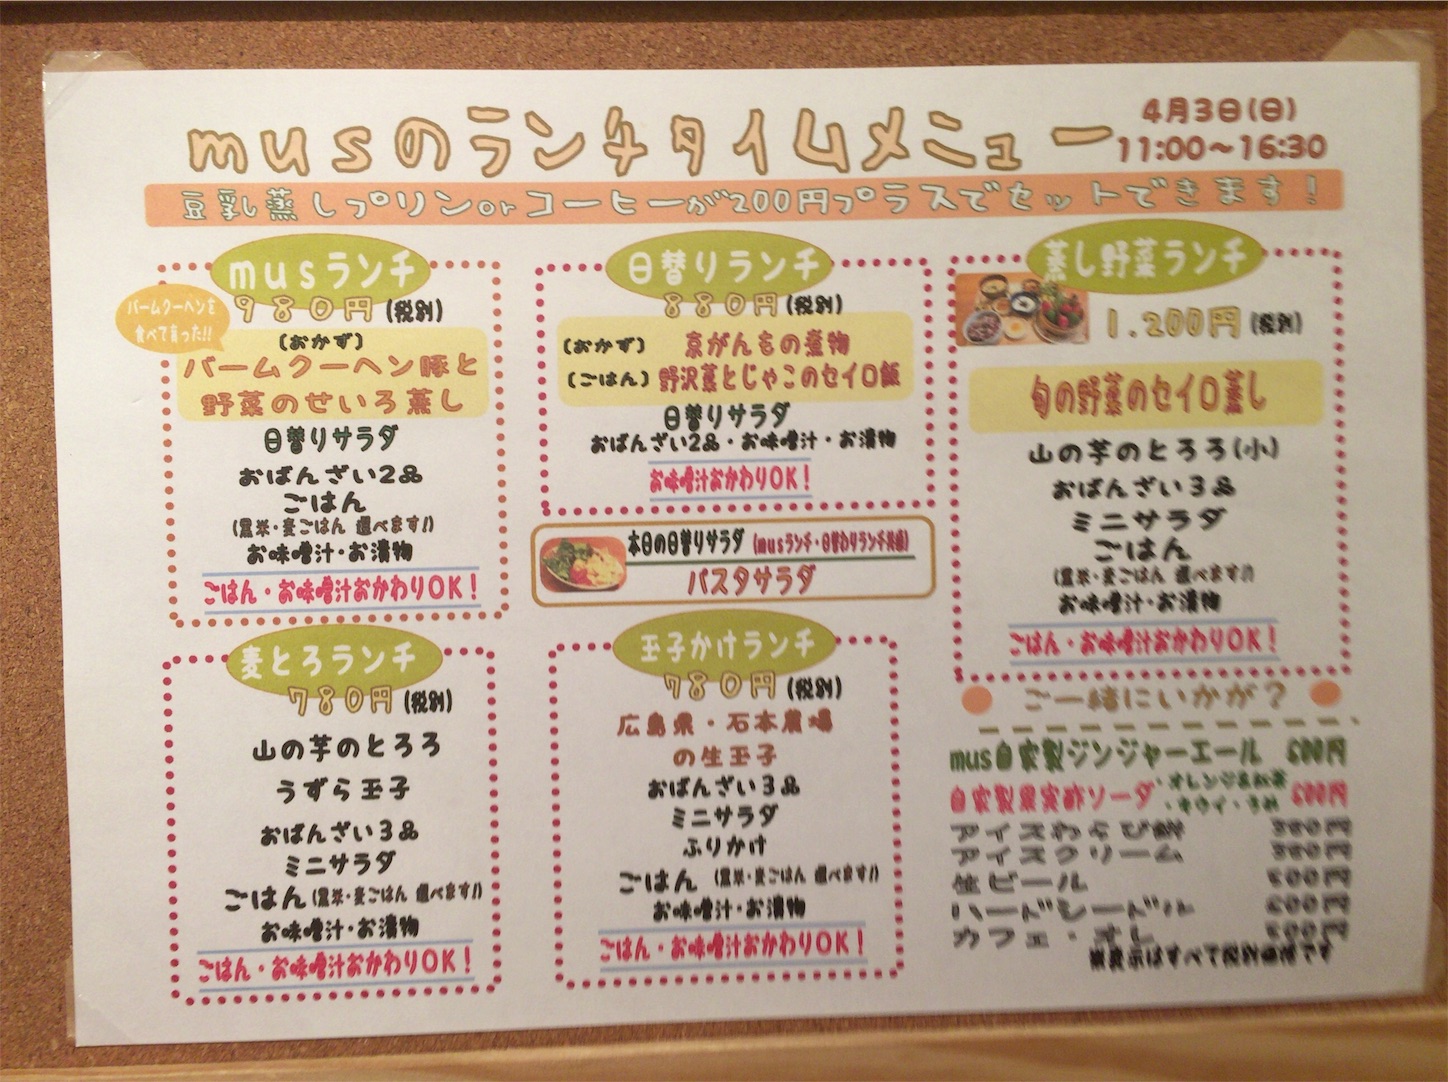 musのランチタイムメニュー
4月3日(日)
11:00～16:30
豆乳蒸しプリンorコーヒーが200円プラスでセットできます!
musランチ
980円(税別)
バームクーヘンを
食べて育った!!
(おかず)
バームクーヘン豚と
野菜のせいろ蒸し
日替りサラダ
おばんざい2品
ごはん
(黒米・麦ごはん 選べます!)
お味噌汁・お漬物
ごはん・お味噌汁おかわりOK!
日替りランチ
880円(税別)
(おかず) 京がんもの煮物
(ごはん) 野沢菜とじゃこのセイロ飯
日替りサラダ
おばんざい2品・お味噌汁・お漬物
お味噌汁おかわりOK!
本日の日替りサラダ (musランチ・日替わりランチ共通)
パスタサラダ
蒸し野菜ランチ
1.200円(税別)
旬の野菜のセイロ蒸し
山の芋のとろろ(小)
おばんざい3品
ミニサラダ
ごはん
(黒米・麦ごはん 選べます!)
お味噌汁・お漬物
ごはん・お味噌汁おかわりOK!
麦とろランチ
780円(税別)
山の芋のとろろ
うずら玉子
おばんざい3品
ミニサラダ
ごはん(黒米・麦ごはん 選べます!)
お味噌汁・お漬物
ごはん・お味噌汁おかわりOK!
玉子かけランチ
780円(税別)
広島県・石本農場
の生玉子
おばんざい3品
ミニサラダ
ふりかけ
ごはん (黒米・麦ごはん 選べます!)
お味噌汁・お漬物
ごはん・お味噌汁おかわりOK!
ご一緒にいかが?
mus自家製ジンジャーエール 600円
自家製果実酢ソーダ ・オレンジ&紅茶 ・キウイ・うめ 600円
アイスわらび餅
アイスクリーム
生ビール
ハードシードル
カフェ・オレ
※表示はすべて税別価格です